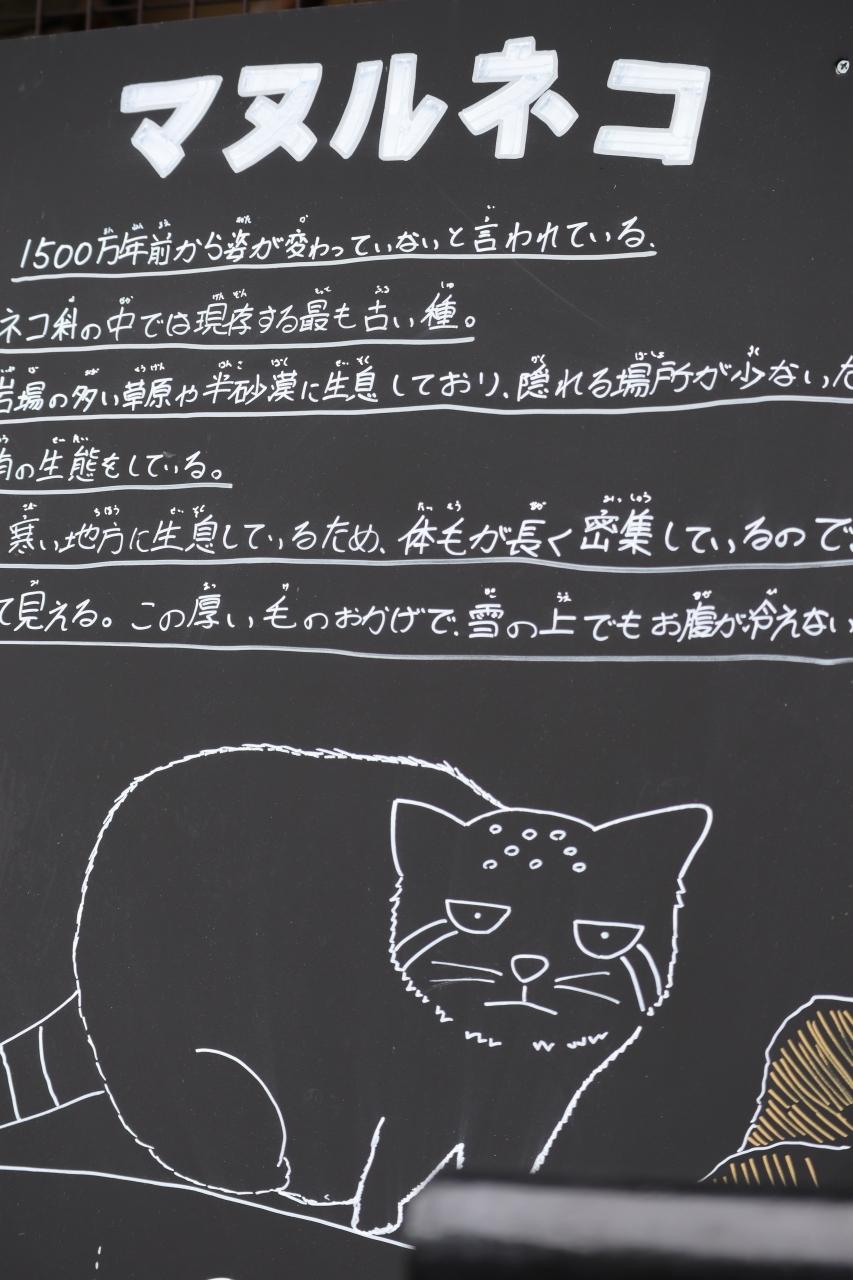 マヌルネコ
1500万年前から姿が変わっていないと言われている.
ネコ科の中では現存する最も古い種。
岩場の多い草原や半砂漠に生息しており、隠れる場所が少ないた
の生態をしている。
寒い地方に生息しているため、体毛が長く密集しているので
て見える。この厚い毛のおかげで、雪の上でもお腹が冷えない